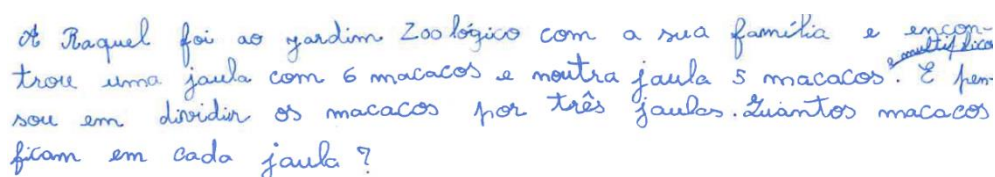 A Raquel foi ao yardim Zoológico com a sua família e encon-
trou uma jaula com 6 macacos e noutra jaula 5 macacos e multiplicou. E pen-
sou em dividir os macacos por três jaulas. Quantos macacos
ficam em cada jaula?